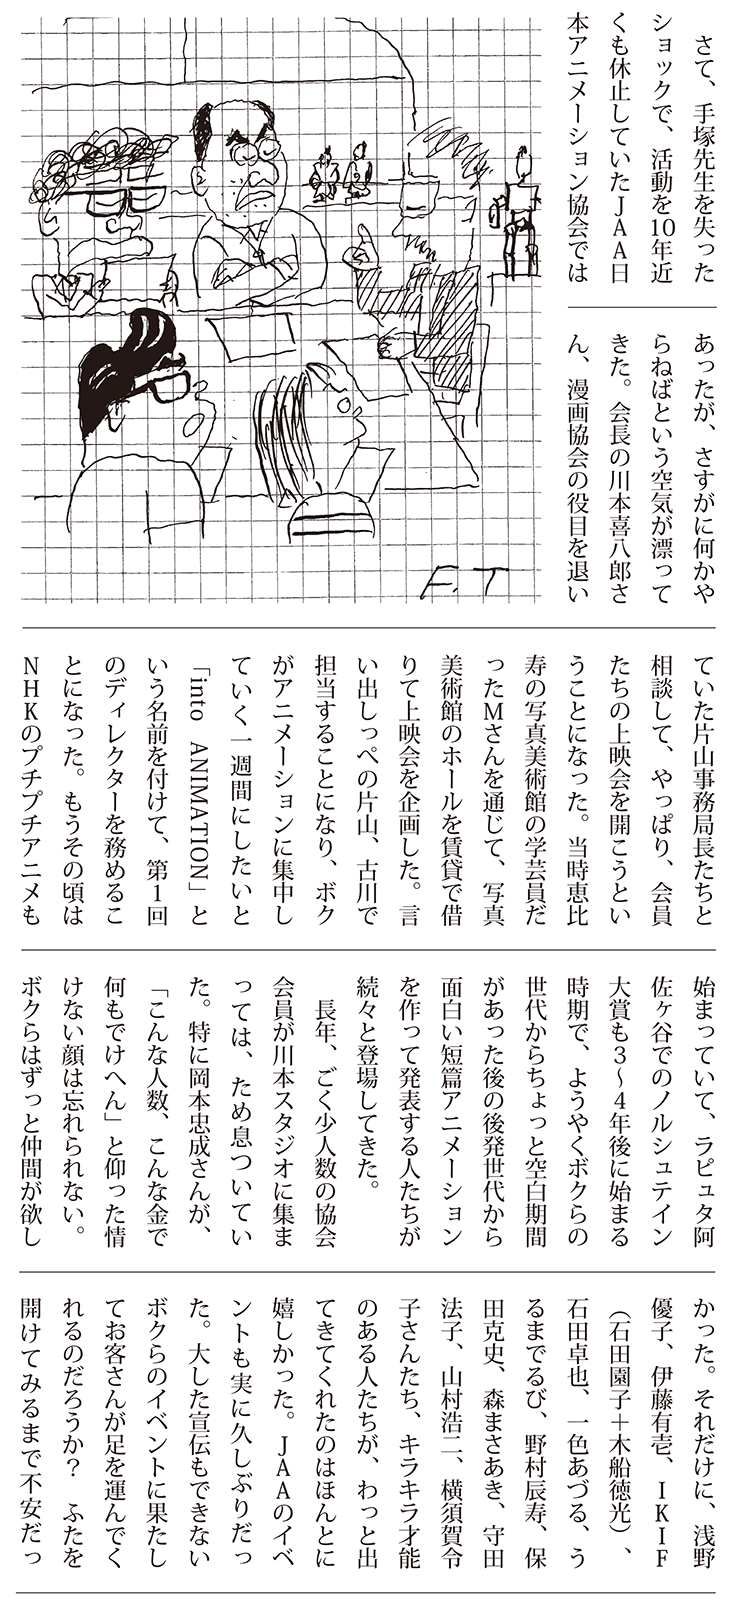 さて、手塚先生を失った
ショックで、活動を10年近
くも休止していたJAA日
本アニメーション協会では
あったが、さすがに何かや
らねばという空気が漂って
きた。会長の川本喜八郎さ
ん、漫画協会の役目を退い
ていた片山事務局長たちと
相談して、やっぱり、会員
たちの上映会を開こうとい
うことになった。当時恵比
寿の写真美術館の学芸員だ
ったMさんを通じて、写真
美術館のホールを賃貸で借
りて上映会を企画した。言
い出しっぺの片山、古川で
担当することになり、ボク
がアニメーションに集中し
ていく一週間にしたいと
「into ANIMATION」と
いう名前を付けて、第1回
のディレクターを務めるこ
とになった。もうその頃は
NHKのプチプチアニメも
始まっていて、ラピュタ阿
佐ヶ谷でのノルシュテイン
大賞も3〜4年後に始まる
時期で、ようやくボクらの
世代からちょっと空白期間
があった後の後発世代から
面白い短篇アニメーション
を作って発表する人たちが
続々と登場してきた。
長年、ごく少人数の協会
会員が川本スタジオに集ま
っては、ため息ついてい
た。特に岡本忠成さんが、
「こんな人数、こんな金で
何もでけへん」と仰った情
けない顔は忘れられない。
ボクらはずっと仲間が欲し
かった。それだけに、浅野
優子、伊藤有壱、IKIF
（石田園子＋木船徳光）、
石田卓也、一色あづる、う
るまでるび、野村辰寿、保
田克史、森まさあき、守田
法子、山村浩二、横須賀令
子さんたち、キラキラ才能
のある人たちが、わっと出
てきてくれたのはほんとに
嬉しかった。JAAのイベ
ントも実に久しぶりだっ
た。大した宣伝もできない
ボクらのイベントに果たし
てお客さんが足を運んでく
れるのだろうか？ ふたを
開けてみるまで不安だっ
F.T